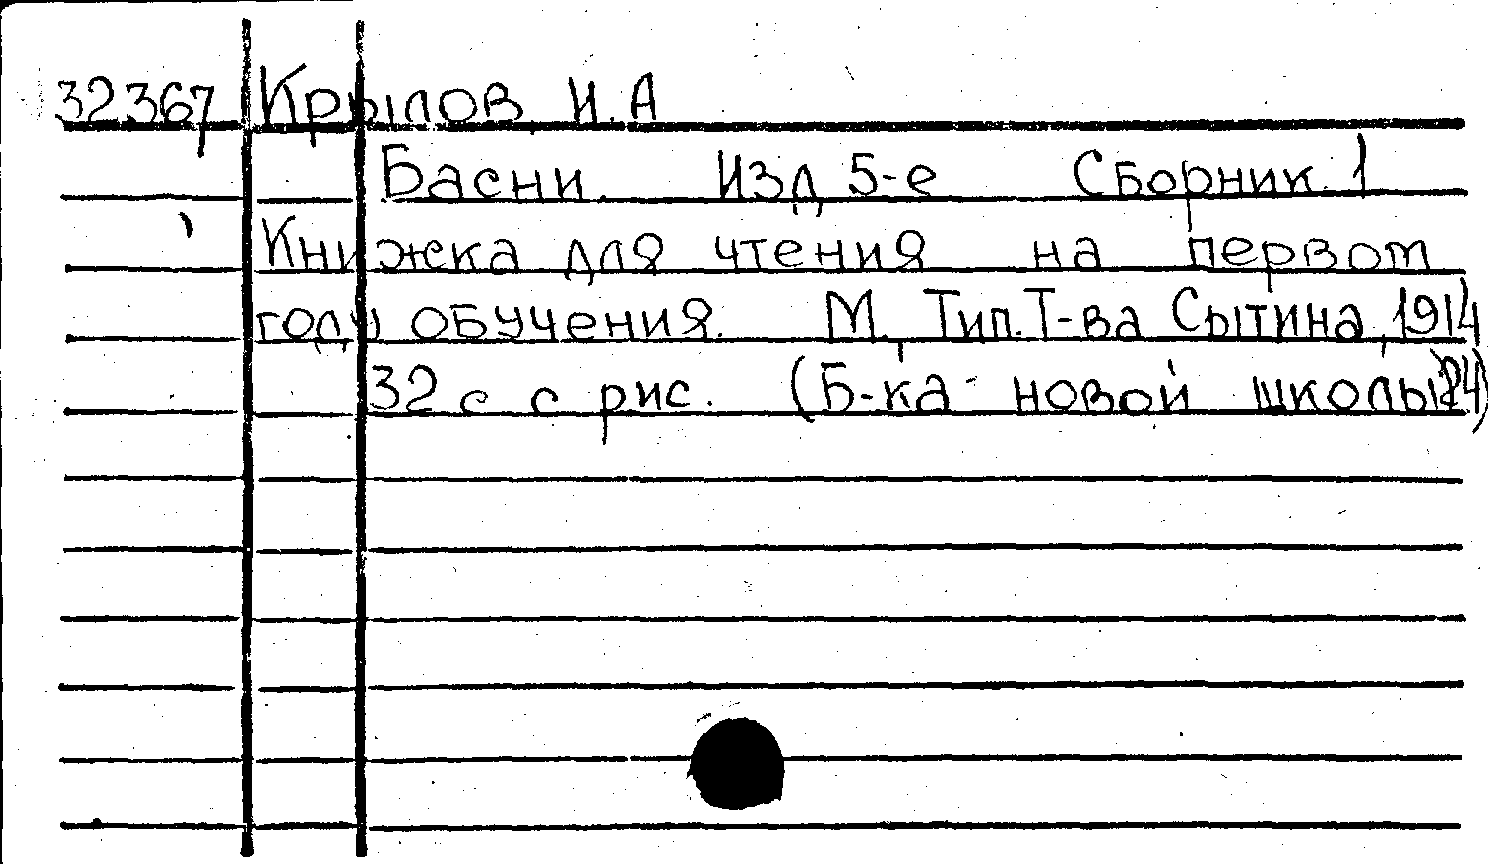 32367 Крылов И.А
Басни. Изд 5-е Сборник 1
Книжка для чтения на первом
году обучения. М. Тип. Т-ва Сытина, 1914
32 с с рис. (Б-ка новой школы 24)